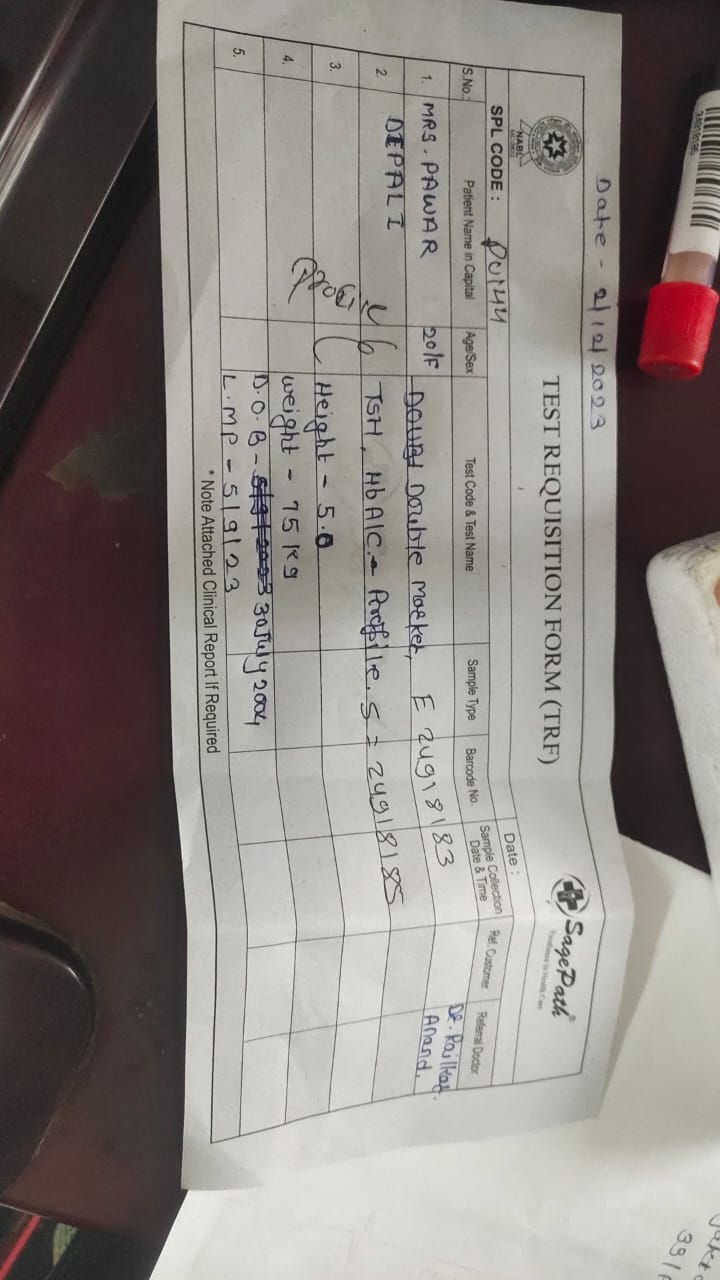 Date - 2/12/2023
TEST REQUISITION FORM (TRF)
NABL
SagePath®
Excellence In Health Care
SPL CODE :
Date :
S.No.: Patient Name in Capital Age/Sex Test Code & Test Name Sample Type Barcode No. Sample Collection Date & Time Ref. Customer Referral Doctor
1. MRS. PAWAR 20/F Double Marker, E 24918183 DR.
DEPALI Anand.
2. TSH, HbA1C. Profile. S = 24918185
3. Height - 5.0
4. weight - 75 kg
D.O.B - 30 July 2004
5. L.M.P - 5/9/23
* Note Attached Clinical Report If Required